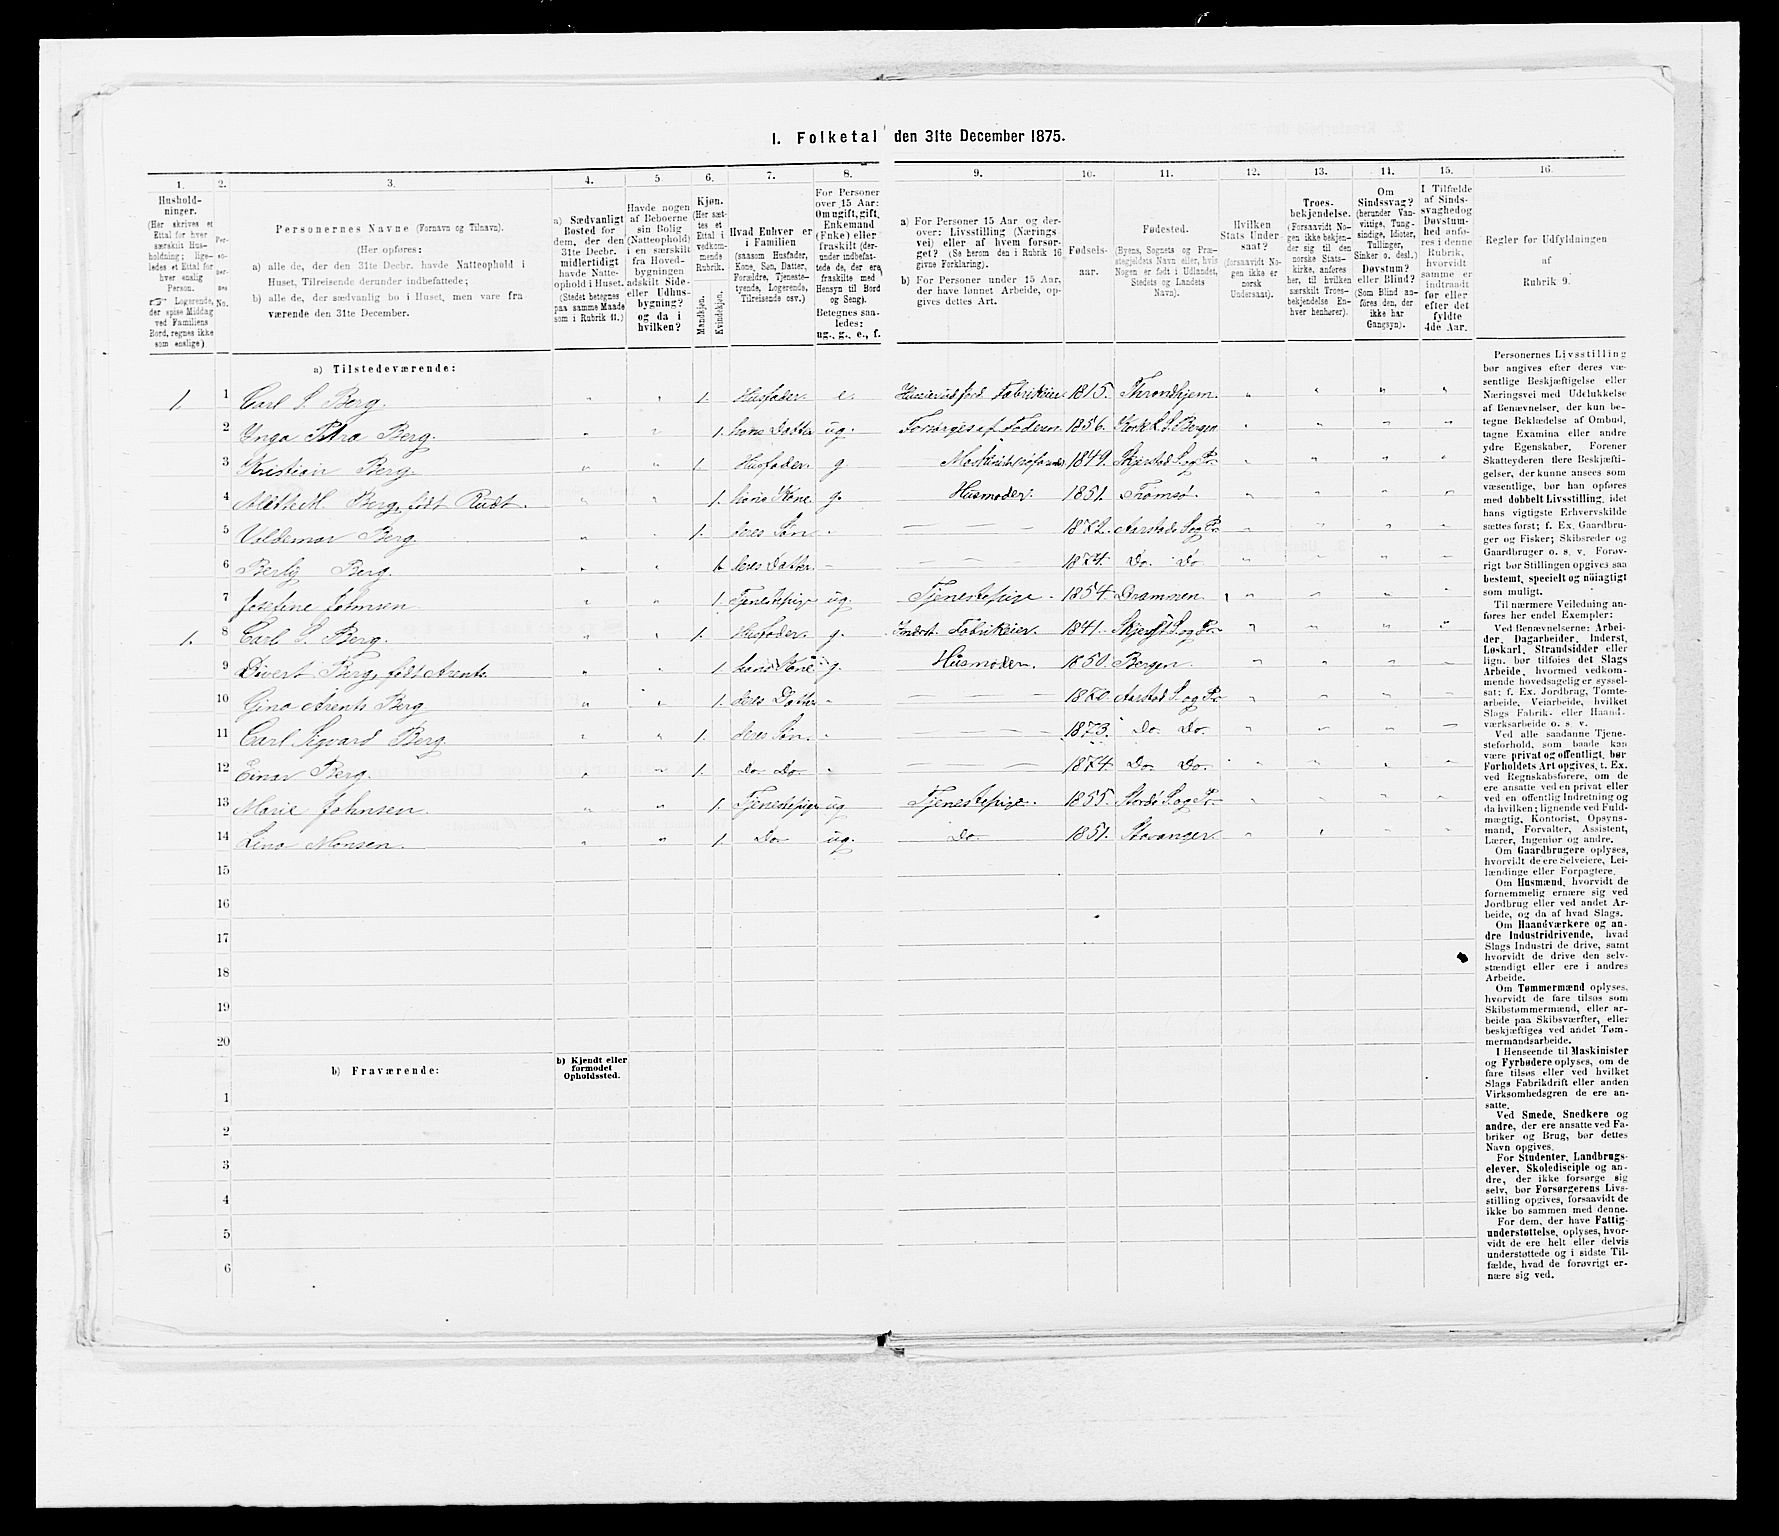 1. Folketal den 31te December 1875.
1. 2. 3. 4. 5. 6. 7. 8. 9. 10. 11. 12. 13. 14. 15. 16.
Hushold-
ninger.
(Her skrives et
Ettal for hver
særskilt Hus-
holdning; lige-
ledes et Ettal for
hver enslig
Person.
☞ Logerende,
der spise Middag
ved Familiens
Bord, regnes ikke
som enslige).
Per-
so-
ner-
nes
No.
Personernes Navne (Fornavn og Tilnavn).
(Her opføres:
a) alle de, der den 31te Decbr. havde Natteophold i
Huset, Tilreisende derunder indbefattede;
b) alle de, der sædvanlig bo i Huset, men vare fra
værende den 31te December.
a) Sædvanligt
Bosted for
dem, der den
31te Decbr.
midlertidigt
havde Natte-
ophold i Huset.
(Stedet betegnes
paa samme Maade
som i Rubrik 11.)
Havde nogen
af Beboerne
sin Bolig
(Natteophold)
i en særskilt
fra Hoved-
bygningen
adskilt Side-
eller Udhus-
bygning?
og da i
hvilken?
Kjøn.
(Her sæt-
tes et
Ettal i
vedkom-
mende
Rubrik.
Mandkjøn.
Kvindekjøn.
Hvad Enhver er
i Familien
(saasom Husfader,
Kone, Søn, Datter,
Forældre, Tjeneste-
tyende, Logerende,
Tilreisende osv.)
For Personer
over 15 Aar:
Om ugift, gift,
Enkemand
(Enke) eller
fraskilt (der-
under indbefat-
tede de, der ere
fraskilte med
Hensyn til Bord
og Seng).
Betegnes saa-
ledes:
ug., g., e., f.
a) For Personer 15 Aar og der-
over: Livsstilling (Nærings-
vei) eller af hvem forsør-
get? (Se herom den i Rubrik 16
givne Forklaring).
b) For Personer under 15 Aar,
der have lønnet Arbeide, op-
gives dettes Art.
Fødsels-
aar.
Fødested.
(Byens, Sognets og Præ-
stegjeldets Navn eller, hvis
Nogen er født i Udlandet,
Stedets og Landets
Navn).
Hvilken
Stats Under-
saat?
(forsaavidt No-
gen ikke er
norsk
Undersaat).
Troes-
bekjendelse.
(Forsaavidt No-
gen ikke bekjen-
der sig til den
norske Stats-
kirke, anføres
her, til hvilken
særskilt Troes-
bekjendelse En-
hver henhører).
Om
Sindssvag?
(herunder Van-
vittige, Tung-
sindige, Idioter,
Tullinger,
Sinker o. desl.)
Døvstum?
eller Blind?
(Som Blind an-
føres den, der
ikke har
Gangsyn).
I Tilfælde
af Sinds-
svaghed og
Døvstum-
hed anfø-
res i denne
Rubrik,
hvorvidt
samme er
indtraadt
før eller
efter det
fyldte
4de Aar.
Regler for Udfyldningen
af
Rubrik 9.
a) Tilstedeværende:
1. 1 Carl S. Berg. " " 1. Husfader. e. Fabrikeier 1815. Throndhjem. " " " "
2 Inga Petra Berg. " " 1. hans Datter ug. Forsørges af Faderen 1856. Bergen " " " "
3 Kristian Berg. " " 1. Husfader. g. 1849. " " " "
4 Berg, født Rudt. " " 1. hans Kone. g. Husmoder. 1851. Tromsø. " " " "
5 Valdemar Berg. " " 1. deres Søn - — — — 1872. Aarstad S. og Pr. " " " "
6 Berg. " " 1. deres Datter. - — — — 1874. Do. Do " " " "
7 Josefine Johnsen. " " 1. Tjenestepige ug. Tjenestepige. 1854. Drammen. " " " "
1. 8 Carl S. Berg. " " 1. Husfader. g. Fabrikeier. 1841. " " " "
9 Berg, født Arents. " " 1. hans Kone g. Husmoder. 1850. Bergen. " " " "
10 Gina Arents Berg " " 1. deres Datter - — — — 1870. Aarstad S. og Pr. " " " "
11 Carl Sigvard Berg. " " 1. deres Søn. - — — — 1873. Do. Do. " " " "
12 Einar Berg. " " 1. Do. Do. - — — — 1874. Do. Do. " " " "
13 Marie Johnsen. " " 1. Tjenestepige ug Tjenestepige. 1855. Stordø S. og Pr. " " " "
14 Lina Monsen. " " 1. Do. ug. Do. 1851. Stavanger. " " " "
15
16
17
18
19
20
b) Fraværende:
b) Kjendt eller
formodet
Opholdssted.
1
2
3
4
5
6
Personernes Livsstilling
bør angives efter deres væ-
sentlige Beskjæftigelse eller
Næringsvei med Udelukkelse
af Benævnelser, der kun be-
tegne Beklædelse af Ombud,
tagne Examina eller andre
ydre Egenskaber. Forener
Skatteyderen flere Beskjæfti-
gelser, der kunne ansees som
væsentlige, bør han opføres
med dobbelt Livsstilling, idet
hans vigtigste Erhvervskilde
sættes først; f. Ex. Gaardbru-
ger og Fisker; Skibsreder og
Gaardbruger o. s. v. Forøv-
rigt bør Stillingen opgives saa
bestemt, specielt og nöiagtigt
som muligt.
Til nærmere Veiledning an-
føres her endel Exempler:
Ved Benævnelserne: Arbei-
der, Dagarbeider, Inderst,
Løskarl, Strandsidder eller
lign. bør tilføies det Slags
Arbeide, hvormed vedkom-
mende hovedsagelig er syssel-
sat; f. Ex. Jordbrug, Tomte-
arbeide, Veiarbeide, hvilket
Slags Fabrik- eller Haand-
værksarbeide o. s. v.
Ved alle saadanne Tjene-
steforhold, som baade kan
være privat og offentligt, bør
Forholdets Art opgives, t. Ex.
ved Regnskabsførere, om de
ere ansatte ved en privat eller
ved en offentlig Indretning og
da hvilken; lignende ved Fuld-
mægtig, Kontorist, Opsyns-
mand, Forvalter, Assistent,
Lærer, Ingeniør og andre.
Om Gaardbrugere oplyses,
hvorvidt de ere Selveiere, Lei-
lændinge eller Forpagtere.
Om Husmænd, hvorvidt de
fornemmelig ernære sig ved
Jordbrug eller ved andet Ar-
beide, og da af hvad Slags.
Om Haandværkere og an-
dre Industridrivende, hvad
Slags Industri de drive, samt
hvorvidt de drive den selv-
stændigt eller ere i andres
Arbeide.
Om Tømmermænd oplyses,
hvorvidt de fare tilsøs som
Skibstømmermænd, eller ar-
beide paa Skibsværfter, eller
beskjæftiges ved andet Tøm-
mermandsarbeide.
I Henseende til Maskinister
og Fyrbødere oplyses, om de
fare tilsøs eller ved hvilket
Slags Fabrikdrift eller anden
Virksomhedsgren de ere an-
satte.
Ved Smede, Snedkere og
andre, der ere ansatte ved Fa-
briker og Brug, bør dettes
Navn opgives.
For Studenter, Landbrugs-
elever, Skoledisciple og an-
dre, der ikke forsørge sig
selv, bør Forsørgerens Livs-
stilling opgives, forsaavidt de
ikke bo sammen med denne.
For dem, der have Fattig-
understøttelse, oplyses, hvor-
vidt de ere helt eller delvis
understøttede og i sidste Til-
fælde, hvad de forøvrigt er-
nære sig ved.